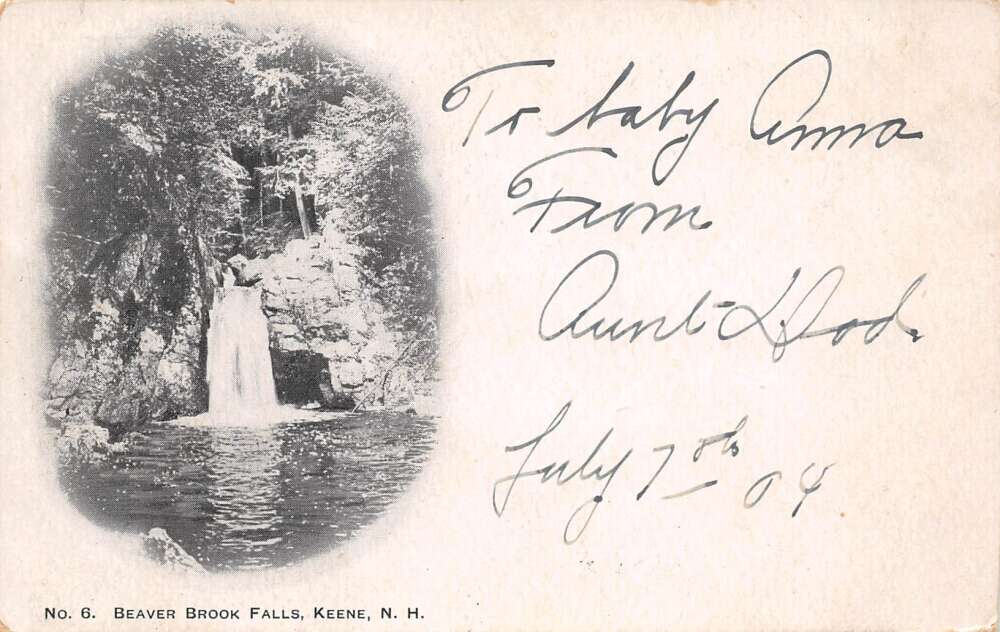 To baby Anna
From
Aunt Dod.
July 7th 04
No. 6. BEAVER BROOK FALLS, KEENE, N. H.